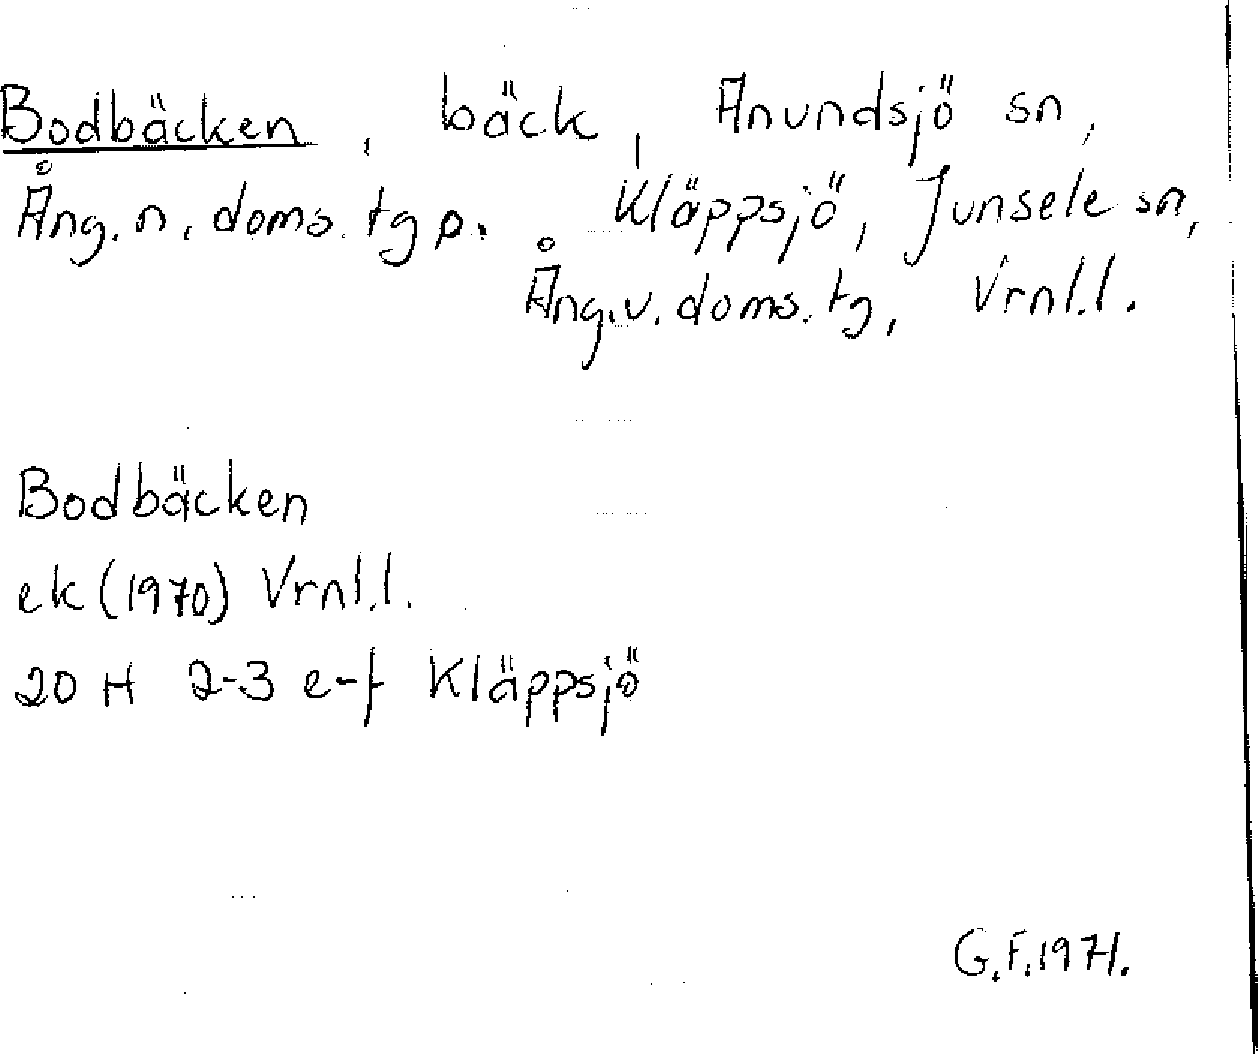 Bodbäcken, bäck, Anundsjö sn,
Ång. n. doms. tg p. Kläppsjö, Junsele sn,
Ång. v. doms. tg, Vrnl.l.
Bodbäcken
ek (1970) Vrnl.l.
20 H 2-3 e-f Kläppsjö
G.F. 1971.